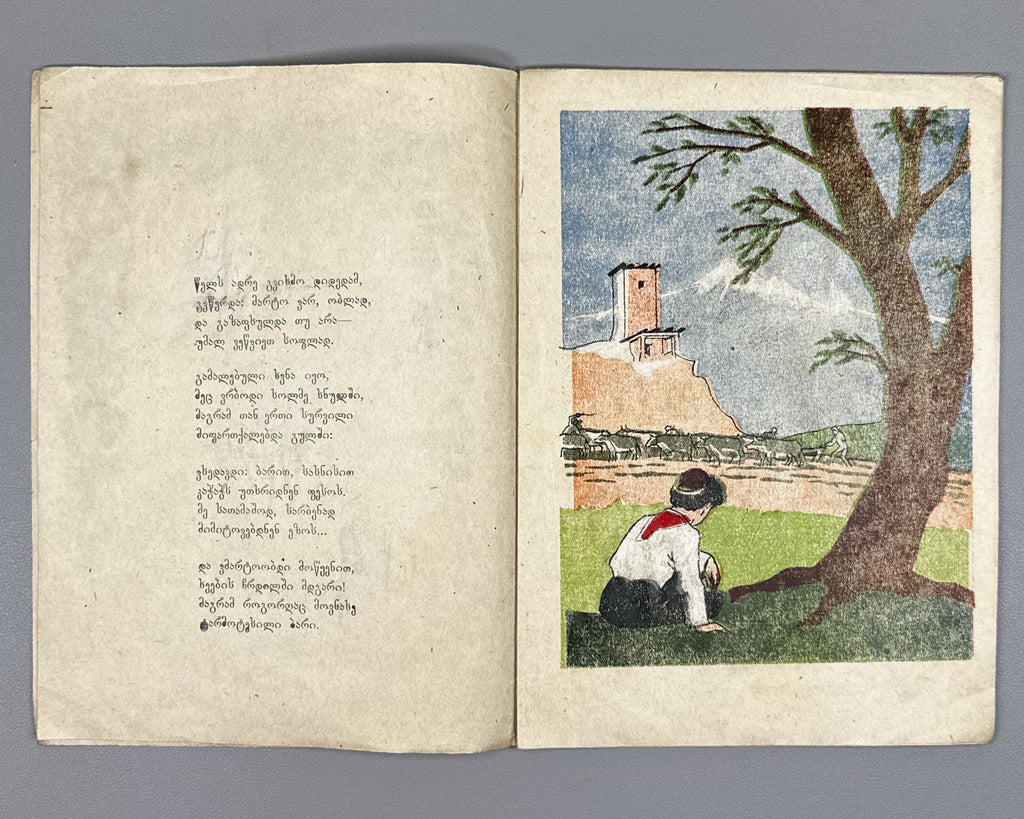 წელს ადრე გვიხმო დიდედამ,
გვწერდა: მარტო ვარ, ობლად,
და გაზაფხულდა თუ არა—
უმალ ვეწვიეთ სოფლად.
გამალებული ხვნა იყო,
მეც ვრბოდი ხოლმე ხნულში,
მაგრამ თან ერთი სურვილი
მიფართქალებდა გულში:
ვხედავდი: ბარით, სახნისით
კაჭაჭს უთხრიდნენ ფესოს.
მე სათამაშოდ, სარბენად
მიმიტოვებდნენ ეზოს...
და ვმარტოობდი მოწყენით,
ხეების ჩრდილში მდგარი!
მაგრამ როგორღაც მოვნახე
ტარმოტეხილი ბარი.